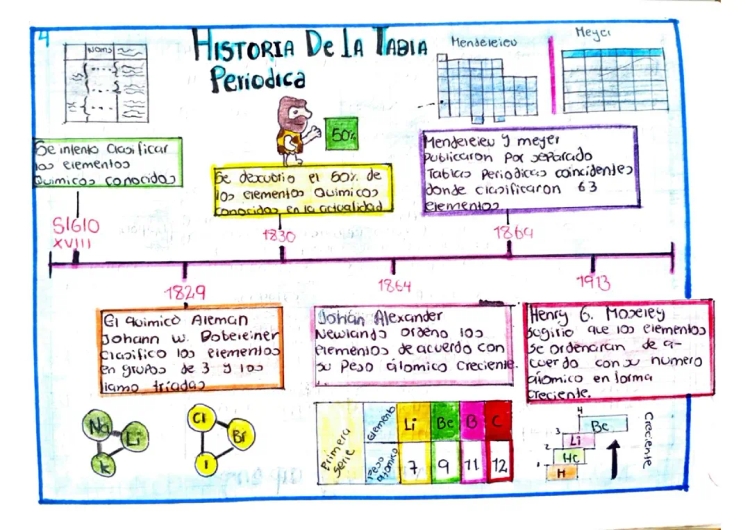 HISTORIA De LA TABLA
Periodica
Mendeleiev
Meyer
50%
Se intento Clasificar
los elementos
Quimicos conocidos
Se descubrio el 50% de
los elementos Quimicos
conocidos en la actualidad
Mendeleiev y meyer
Publicaron Por separado
Tablas Periodicas coincidentes
donde clasificaron 63
elementos
SIGLO
XVIII
1830
1869
1829
1864
1913
El químico Aleman
Johann W. Dobeleiner
Clasifico los elementos
en grupos de 3 y los
llamo triadas
Johan Alexander
Newlands ordeno los
elementos de acuerdo con
su Peso atomico Creciente.
Henry G. Moseley
sugirio que los elementos
Se ordenaran de a-
cuerdo con su numero
atomico en forma
Creciente.
Na
Li
K
Cl
Br
I
Primera
serie
Elemento
Li Be B C
Peso
atomico
7 9 11 12
4 Be
3 Li
2 He
1 H
Creciente